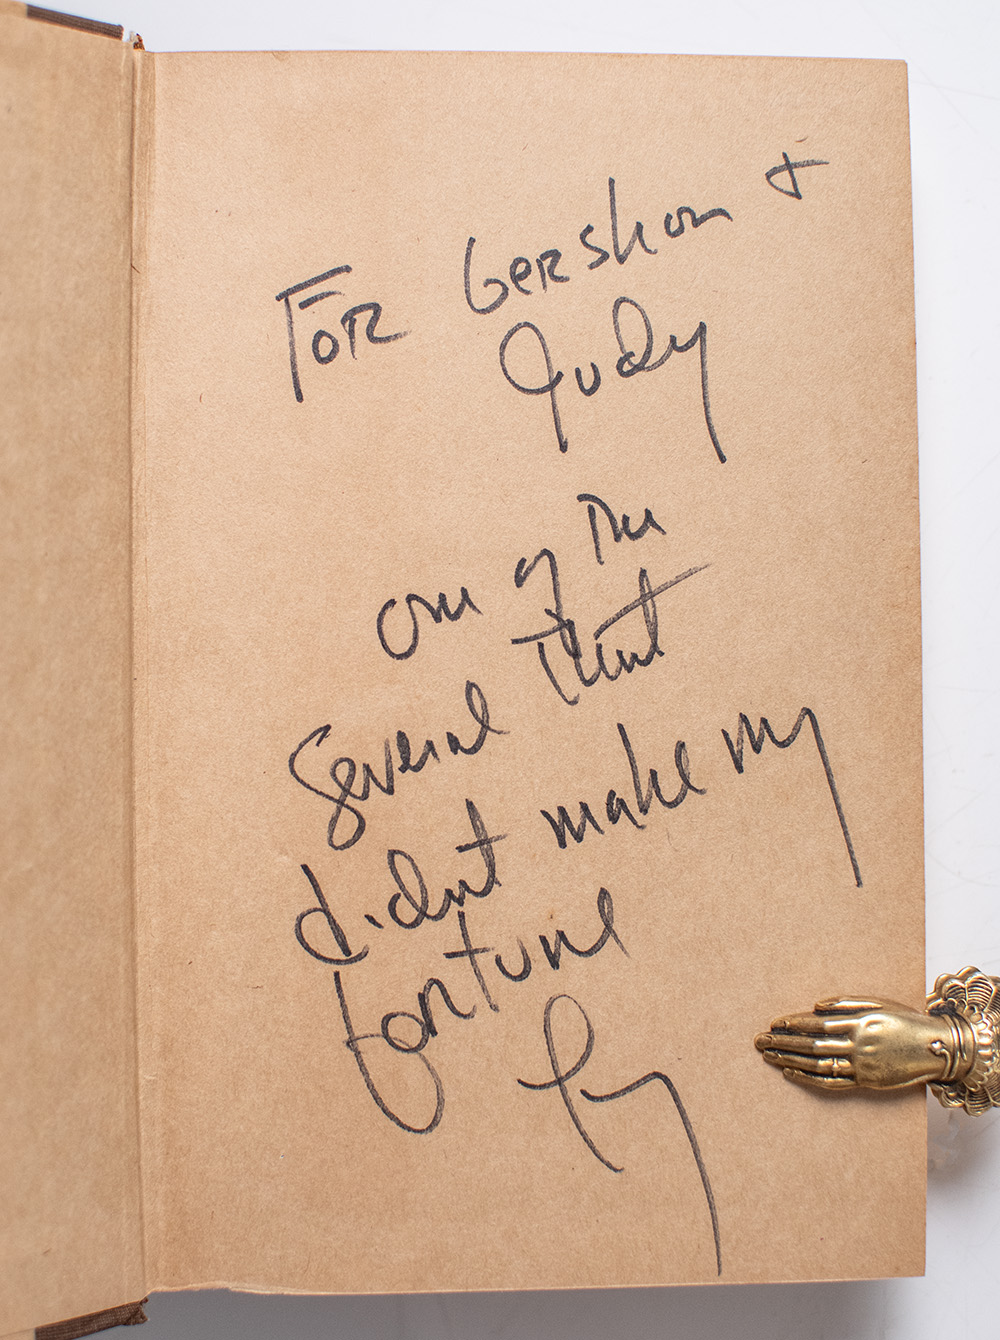 For Gershon +
Judy
one of the
several that
didnt make my
fortune